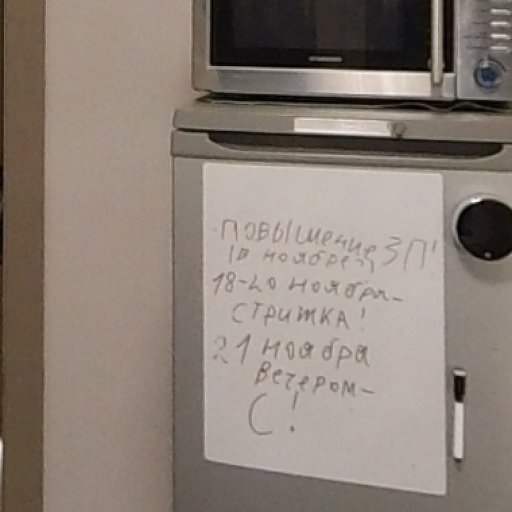 ПОВЫШЕНИЕ ЗП!
18-20 ноября-
СТРИЖКА!
21 ноября
Вечером-
С!